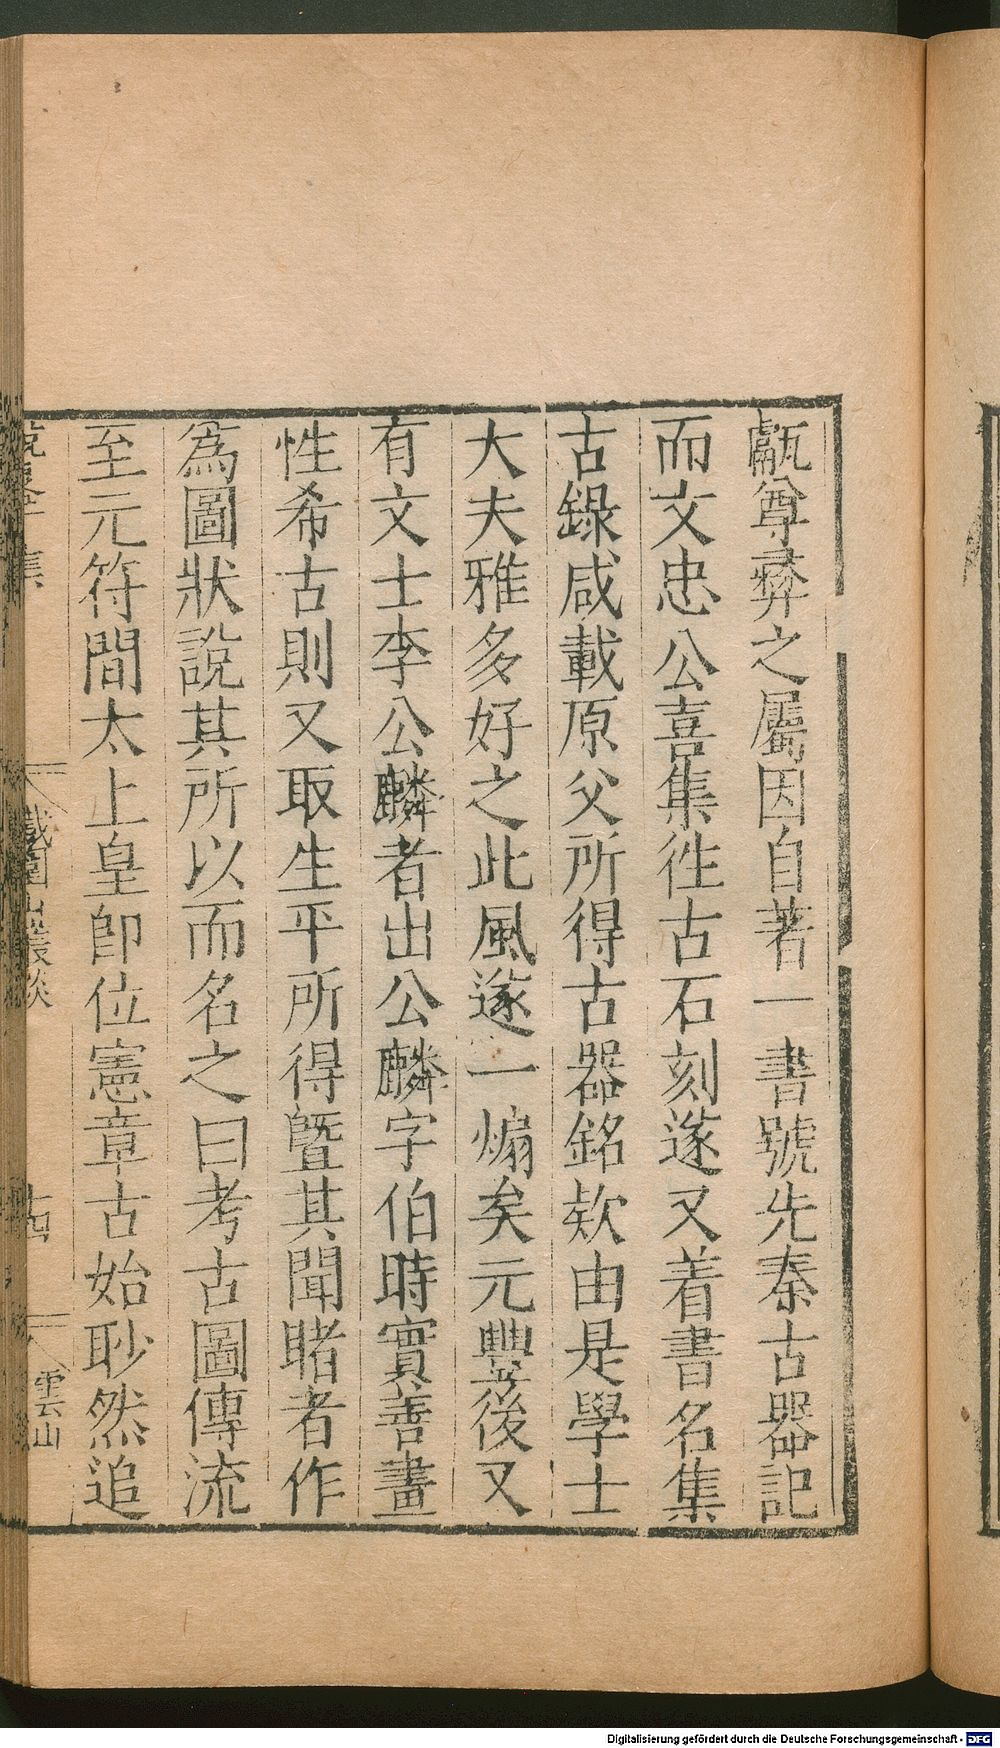 甗尊彛之屬因自著一書號先秦古器記
而文忠公喜集徃古石刻遂又着書名集
古錄咸載原父所得古器銘欵由是學士
大夫雅多好之此風遂一煽矣元豐後又
有文士李公麟者出公麟字伯時實善畫
性希古則又取生平所得曁其聞睹者作
為圖狀說其所以而名之曰考古圖傳流
至元符間太上皇卽位憲章古始眇然追
雲山
Digitalisierung gefördert durch die Deutsche Forschungsgemeinschaft - DFG